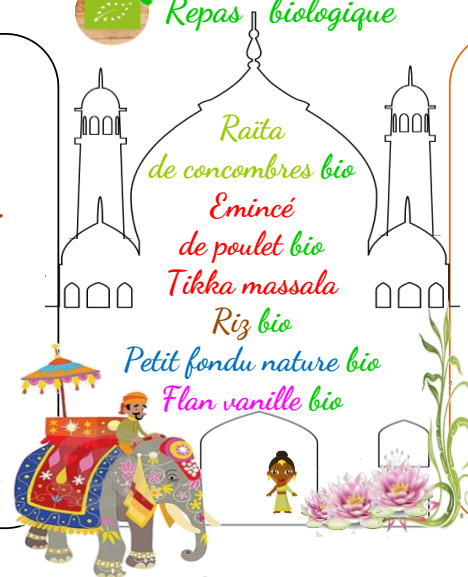 Repas biologique
Raïta
de concombres bio
Emincé
de poulet bio
Tikka massala
Riz bio
Petit fondu nature bio
Flan vanille bio